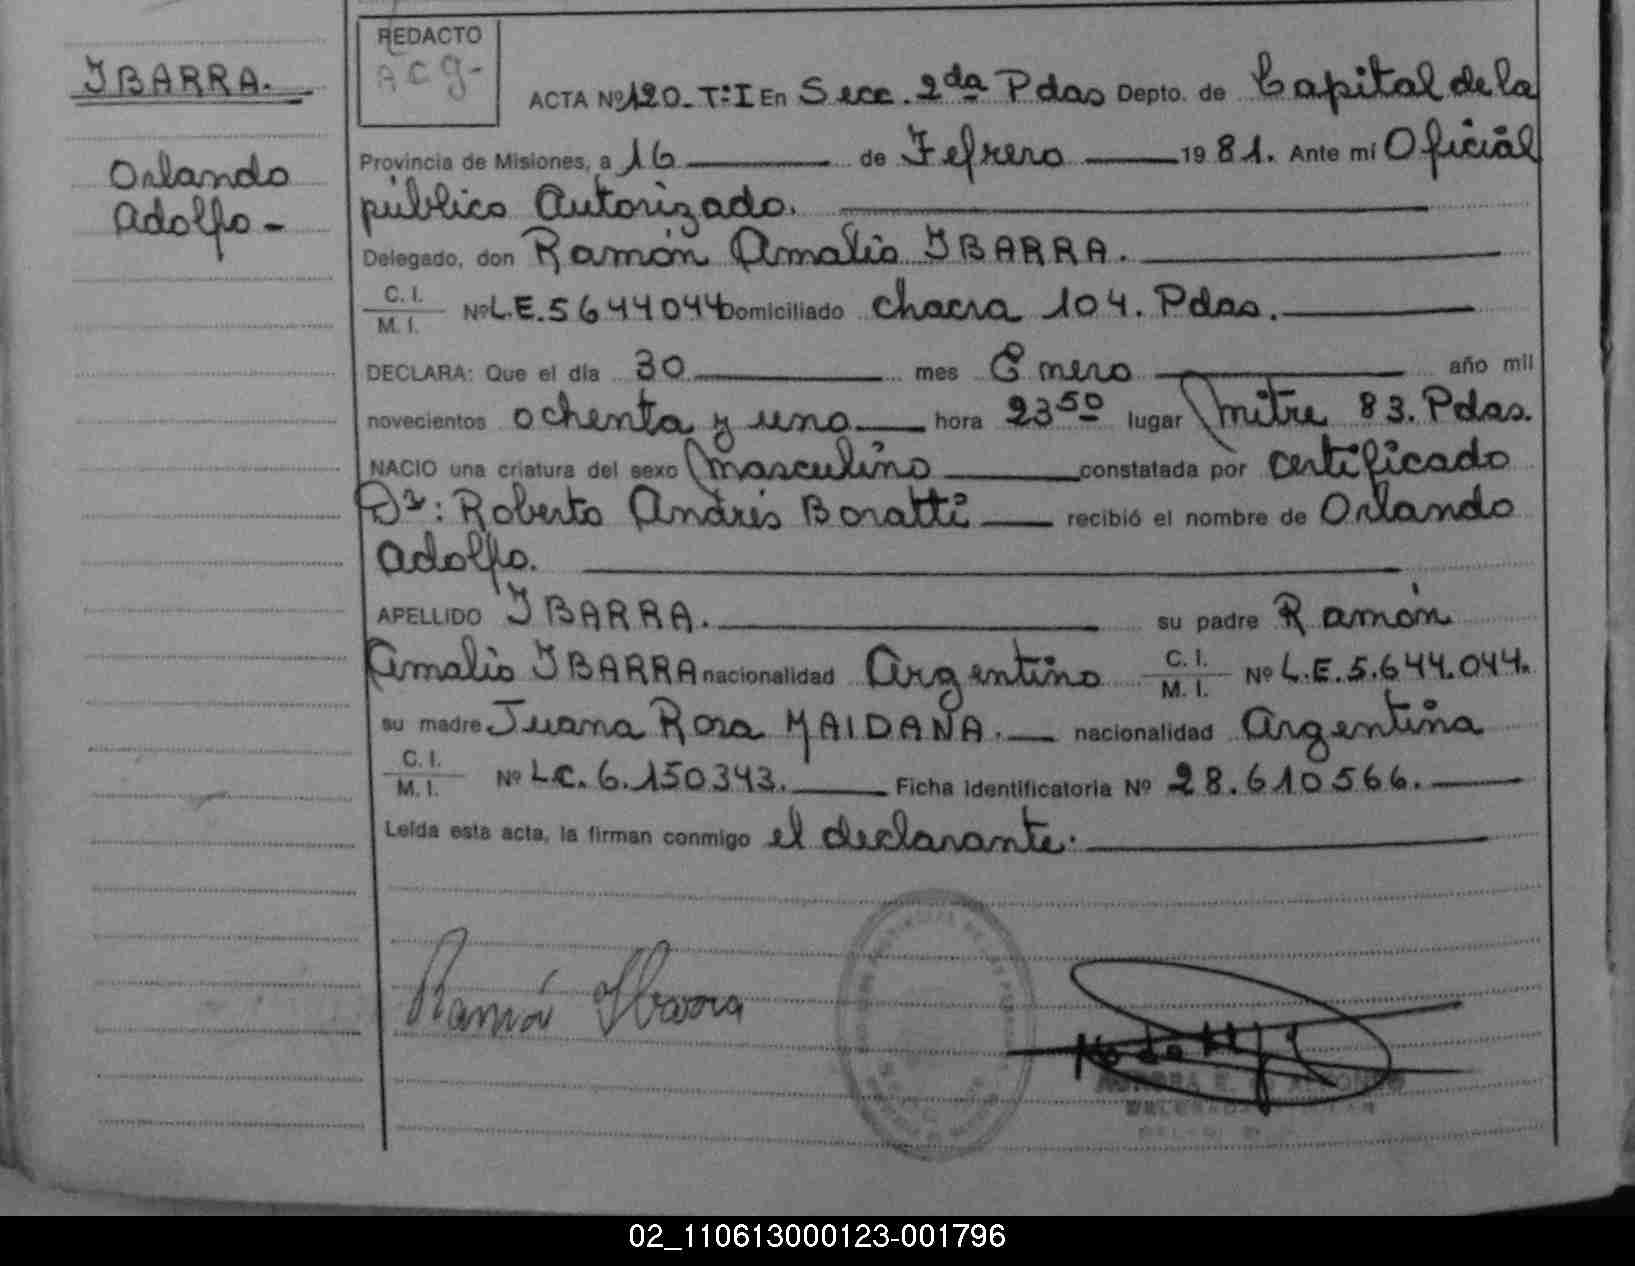 IBARRA.
Orlando
Adolfo -
REDACTO
A C g-
ACTA Nº 120. Tº I En Secc. 2da Pdas Depto. de Capital de la
Provincia de Misiones, a 16 de Febrero 19 81. Ante mí Oficial
público Autorizado.
Delegado, don Ramón Amalio IBARRA.
C. I.
M. I. Nº L.E. 5644044 Domiciliado chacra 104. Pdas.
DECLARA: Que el día 30 mes Enero año mil
novecientos ochenta y uno hora 23 50 lugar Mitre 83. Pdas.
NACIO una criatura del sexo Masculino constatada por certificado
Dr: Roberto Andrés Boratti recibió el nombre de Orlando
Adolfo.
APELLIDO IBARRA. su padre Ramón
Amalio IBARRA nacionalidad Argentino C. I. M. I. Nº L.E. 5.644.044.
su madre Juana Rosa MAIDANA. nacionalidad Argentina
C. I.
M. I. Nº L.C. 6.150343. Ficha identificatoria Nº 28.610566.
Leída esta acta, la firman conmigo el declarante.
Ramón Ibarra
02_110613000123-001796